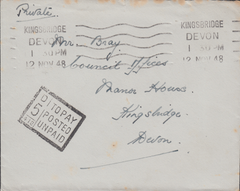 Private
KINGSBRIDGE
DEVON
1 30 PM
12 NOV 48
KINGSBRIDGE
DEVON
1 30 PM
12 NOV 48
Mrs. Bray
Council Offices
Manor House,
Kingsbridge,
Devon.
TO PAY
5
POSTED
UNPAID